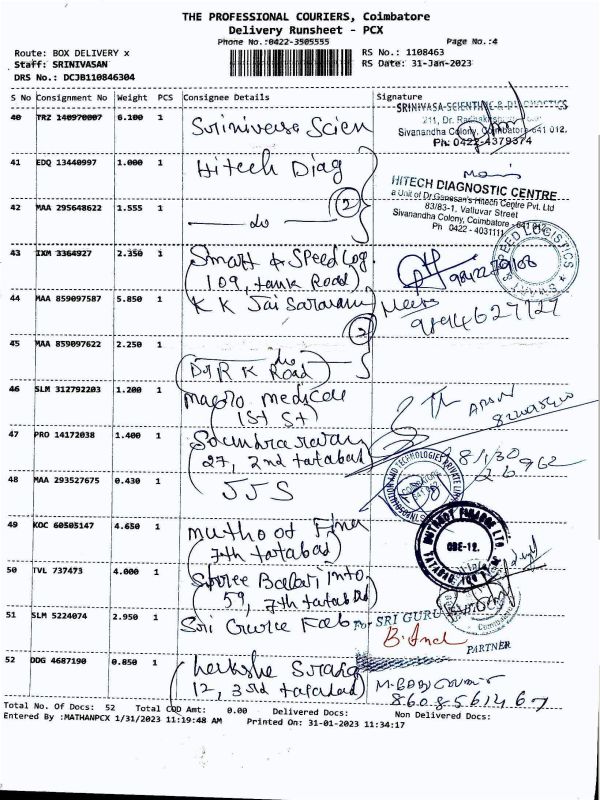 THE PROFESSIONAL COURIERS, Coimbatore
Delivery Runsheet - PCX
Phone No.:0422-3505555 Page No.:4
Route: BOX DELIVERY x RS No.: 1108463
Staff: SRINIVASAN RS Date: 31-Jan-2023
DRS No.: DCJB110846304
S No Consignment No Weight PCS Consignee Details Signature
40 TRZ 140970007 6.100 1 Srinivasa Scien
SRINIVASA SCIENTIFIC & DIAGNOSTICS
211, Dr.
Sivanandha Colony, Coimbatore-641 012.
Ph: 0422-4379374
41 EDQ 13440997 1.000 1 Hitech Diag
HITECH DIAGNOSTIC CENTRE
a Unit of Dr.Ganesan's Hitech Centre Pvt. Ltd
83/83-1, Valluvar Street
Sivanandha Colony, Coimbatore - 641 012
Ph 0422 - 4031111
42 MAA 295648622 1.555 1 do 2
43 IXM 3364927 2.350 1 Smart & Speed Log
(109, tank Road)
SPEED LOGISTICS
SMART
44 MAA 859097587 5.850 1 K K Jai Sararam
Meera
9894627727
45 MAA 859097622 2.250 1 do 2
(Dr R K Road)
46 SLM 312792203 1.200 1 macro medical
(1st St)
47 PRO 14172038 1.400 1
27, 2nd tatabad
48 MAA 293527675 0.430 1 JJS
49 KOC 60505147 4.650 1 muthoot Fina
(7th tatabad)
MUTHOOT FINANCE LTD
CBE-12.
50 TVL 737473 4.000 1 Shree Balaji
59, 7th tatabad
51 SLM 5224074 2.950 1 Sri Guru Fab
For SRI GURU
Coimbatore
PARTNER
52 DDG 4687190 0.850 1
12, 3rd tatabad
8608561467
Total No. Of Docs: 52 Total COD Amt: 0.00 Delivered Docs: Non Delivered Docs:
Entered By :MATHANPCX 1/31/2023 11:19:48 AM Printed On: 31-01-2023 11:34:17